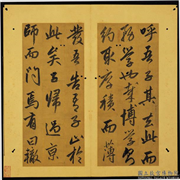 呼吾子其去此而
務學也哉博學而
約取厚積而薄
發吾告吾子止於
此矣子歸過京
師而問焉有曰轍